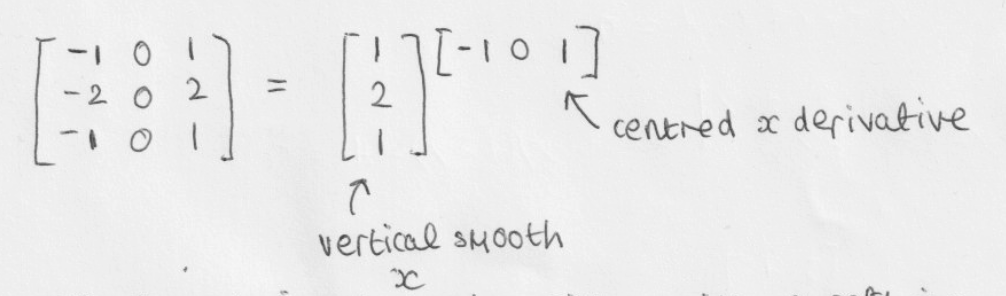 [-1 0 1
-2 0 2
-1 0 1] = [1
2
1] [-1 0 1]
centred x derivative
vertical smooth
x